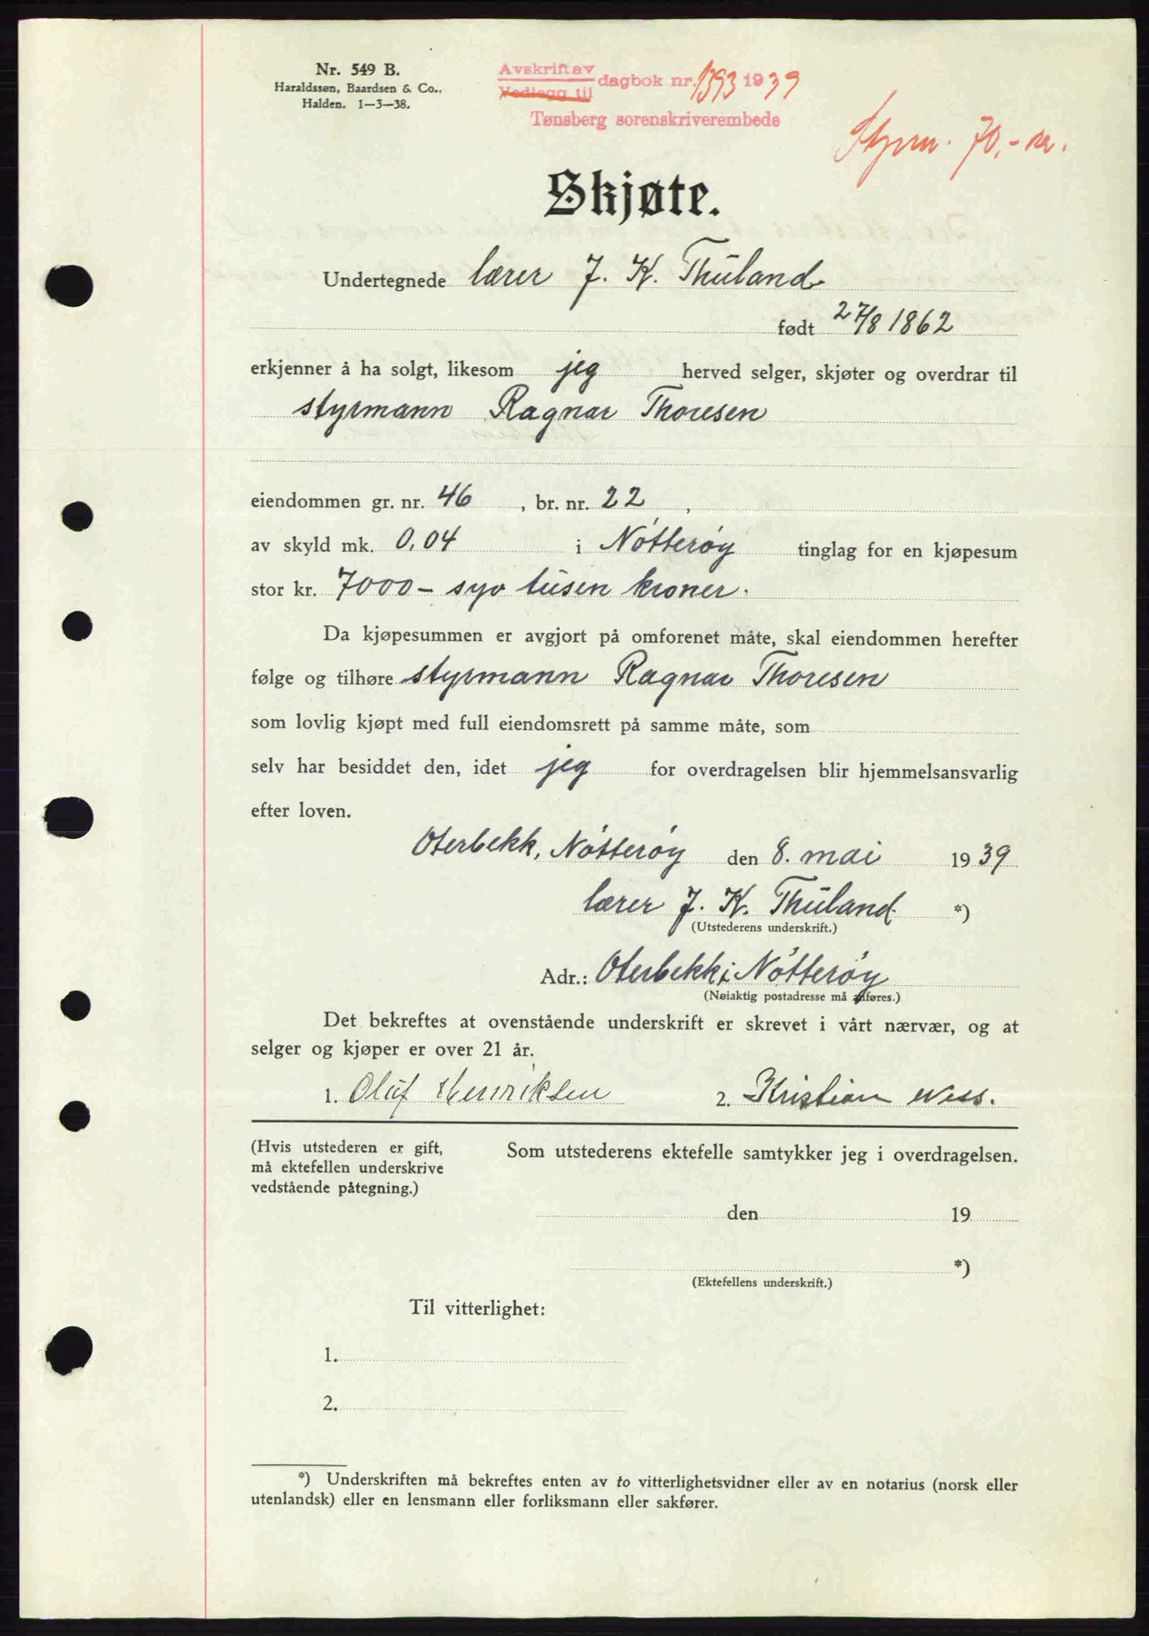 Nr. 549 B.
Haraldssøn, Baardsen & Co..
Halden. 1—3—38.
Avskrift av
Vedlegg til
dagbok nr. 1393 1939
Tønsberg sorenskriverembede
70,- kr.
Skjøte.
Undertegnede lærer J. K. Thüland
født 27/8 1862
erkjenner å ha solgt, likesom jeg herved selger, skjøter og overdrar til
styrmann Ragnar Thoresen
eiendommen gr. nr. 46, br. nr. 22,
av skyld mk. 0,04 i Nøtterøy tinglag for en kjøpesum
stor kr. 7000 - syv tusen kroner.
Da kjøpesummen er avgjort på omforenet måte, skal eiendommen herefter
følge og tilhøre styrmann Ragnar Thoresen
som lovlig kjøpt med full eiendomsrett på samme måte, som
selv har besiddet den, idet jeg for overdragelsen blir hjemmelsansvarlig
efter loven.
Oterbekk, Nøtterøy den 8. mai 1939
lærer J. K. Thüland *)
(Utstederens underskrift.)
Adr.: Oterbekk i Nøtterøy
(Nøiaktig postadresse må anføres.)
Det bekreftes at ovenstående underskrift er skrevet i vårt nærvær, og at
selger og kjøper er over 21 år.
1. Oluf Henriksen 2. Kristian Wess.
(Hvis utstederen er gift,
må ektefellen underskrive
vedstående påtegning.)
Som utstederens ektefelle samtykker jeg i overdragelsen.
den 19
*)
(Ektefellens underskrift.)
Til vitterlighet:
1.
2.
*) Underskriften må bekreftes enten av to vitterlighetsvidner eller av en notarius (norsk eller
utenlandsk) eller en lensmann eller forliksmann eller sakfører.